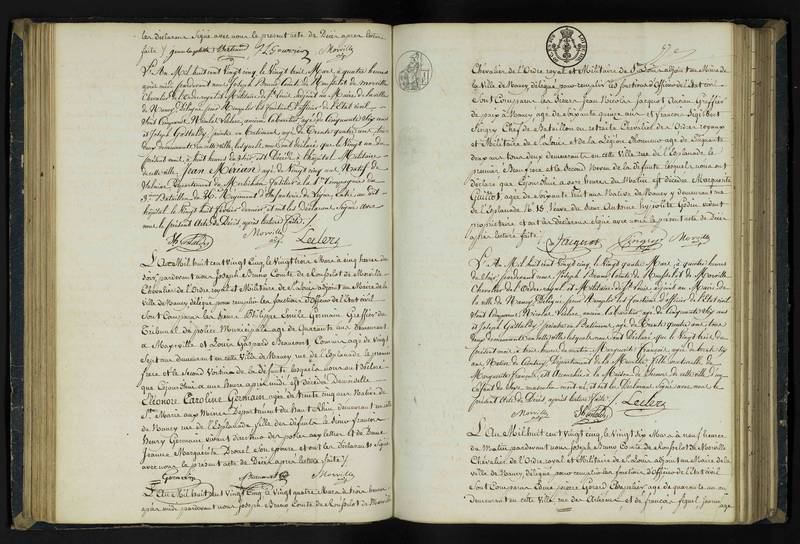 les déclarans signé avec nous le présent acte de Décès après lecture
faite /
Morville
L'An Mil huit cent vingt cinq, le vingt trois Mars à quatre heures
Chevalier de l'Ordre royal et Militaire de St Louis adjoint au Maire de la ville
de Nancy, délégué pour remplir les fonctions d'officier de l'Etat civil
sont Comparus Nicolas Leclerc, ancien âgé de Cinquante six ans
et Joseph âgé de Trente quatre ans, tous
deux demeurant en cette ville, lesquels nous ont déclaré que le Vingt un du
présent mois, à huit heures du soir est Décédé à l'hôpital Militaire
de cette ville, Jean Mérian, âgé de Vingt cinq ans Natif de
Département du Morbihan, fusilier à la 1re Compagnie du
3e Bataillon du 26e Régiment d'Infanterie de Ligne, entré au dit
hôpital le Vingt huit février dernier, et ont les déclarans signé avec
nous le présent Acte de Décès, après lecture faite /
Morville
Leclerc
L'An Mil huit cent Vingt Cinq, le vingt trois Mars à cinq heures du
soir, pardevant nous Joseph Bruno Comte de Rousselot de Morville
Chevalier de l'Ordre royal et Militaire de St Louis adjoint au Maire de la
Ville de Nancy délégué pour remplir les fonctions d'Officier de l'Etat civil
Sont Comparus les Sieurs Philippe Emile Germain Greffier du
Tribunal de police Municipale âgé de quarante ans demeurant
à Maxéville et Louis Gaspard Beaumont Commis âgé de Vingt
Sept ans demeurant en cette Ville de Nancy rue de l'Esplanade le premier
frère et le Second Voisin de la défunte lesquels nous ont déclaré
que Cejourd'hui à une heure après midi est décédée Demoiselle
Eléonore Caroline Germain, âgée de trente cinq ans Native de
Ste Marie aux Mines Département du Haut Rhin demeurant en cette ville
de Nancy rue de l'Esplanade fille des défunts le Sieur François
Henry Germain vivant directeur des postes aux lettres et de Dame
Jeanne Marguerite son épouse, et ont les Déclarans Signé
avec nous le présent acte de Décès après lecture faite /
Germain
Beaumont
Morville
L'An Mil huit cent Vingt Cinq, le Vingt quatre Mars à trois heures
après midi pardevant nous Joseph Bruno Comte de Rousselot de Morville
57
Chevalier de l'Ordre royal et Militaire de St Louis adjoint au Maire de
la Ville de Nancy, délégué pour remplir les fonctions d'Officier de l'Etat civil
Sont Comparus les Sieurs Jean Nicolas Jacquot Ancien Greffier
de paix à Nancy âgé de soixante quinze ans et François Sigisbert
Singry Chef de Bataillon en retraite Chevalier des Ordres royaux
et Militaire de St Louis et de la Légion d'honneur âgé de Cinquante
deux ans tous deux demeurants en cette Ville rue de l'Esplanade le
premier Beau frère et le Second Neveu de la défunte lesquels nous ont
déclaré que Cejourd'hui à sept heures du Matin est décédée Marguerite
Guillot, âgée de soixante huit ans Native de Nancy y demeurant rue
de l'Esplanade No 18, Veuve du Sieur Antoine hypolite Godin vivant
propriétaire et ont les déclarans Signé avec nous le présent acte de Décès
après lecture faite /
Jacquot
Singry
Morville
L'An Mil huit cent Vingt cinq, le Vingt quatre Mars, à quatre heures
Chevalier de l'Ordre royal et Militaire de St Louis, adjoint au Maire de
la ville de Nancy, Délégué pour remplir les fonctions d'officier de l'Etat civil
sont Comparus Nicolas Leclerc, ancien âgé de Cinquante six ans
et Joseph âgé de Trente quatre ans, tous
deux demeurants en cette ville, lesquels nous ont Déclaré que le Vingt trois du
présent mois, à trois heures du matin, Marguerite François, âgée de trente six
ans, Native de Département de la Meurthe, fille naturelle de
Marguerite François, est Accouchée à la Maison de Secours de cette ville d'un
Enfant du Sexe masculin mort né, et ont les Déclarans Signé avec nous le
présent Acte de Décès, après lecture faite /
Leclerc
Morville
L'An Mil huit cent Vingt Cinq, le Vingt Six Mars à neuf heures
du Matin pardevant nous Joseph Bruno Comte de Rousselot de Morville
Chevalier de l'Ordre royal et Militaire de St Louis adjoint au Maire de la
ville de Nancy, délégué pour remplir les fonctions d'Officier de l'Etat civil
Sont Comparus Côme pierre Gérard Chapelier âgé de quarante un ans
demeurant en cette Ville rue des Artisans et de françois
âgé